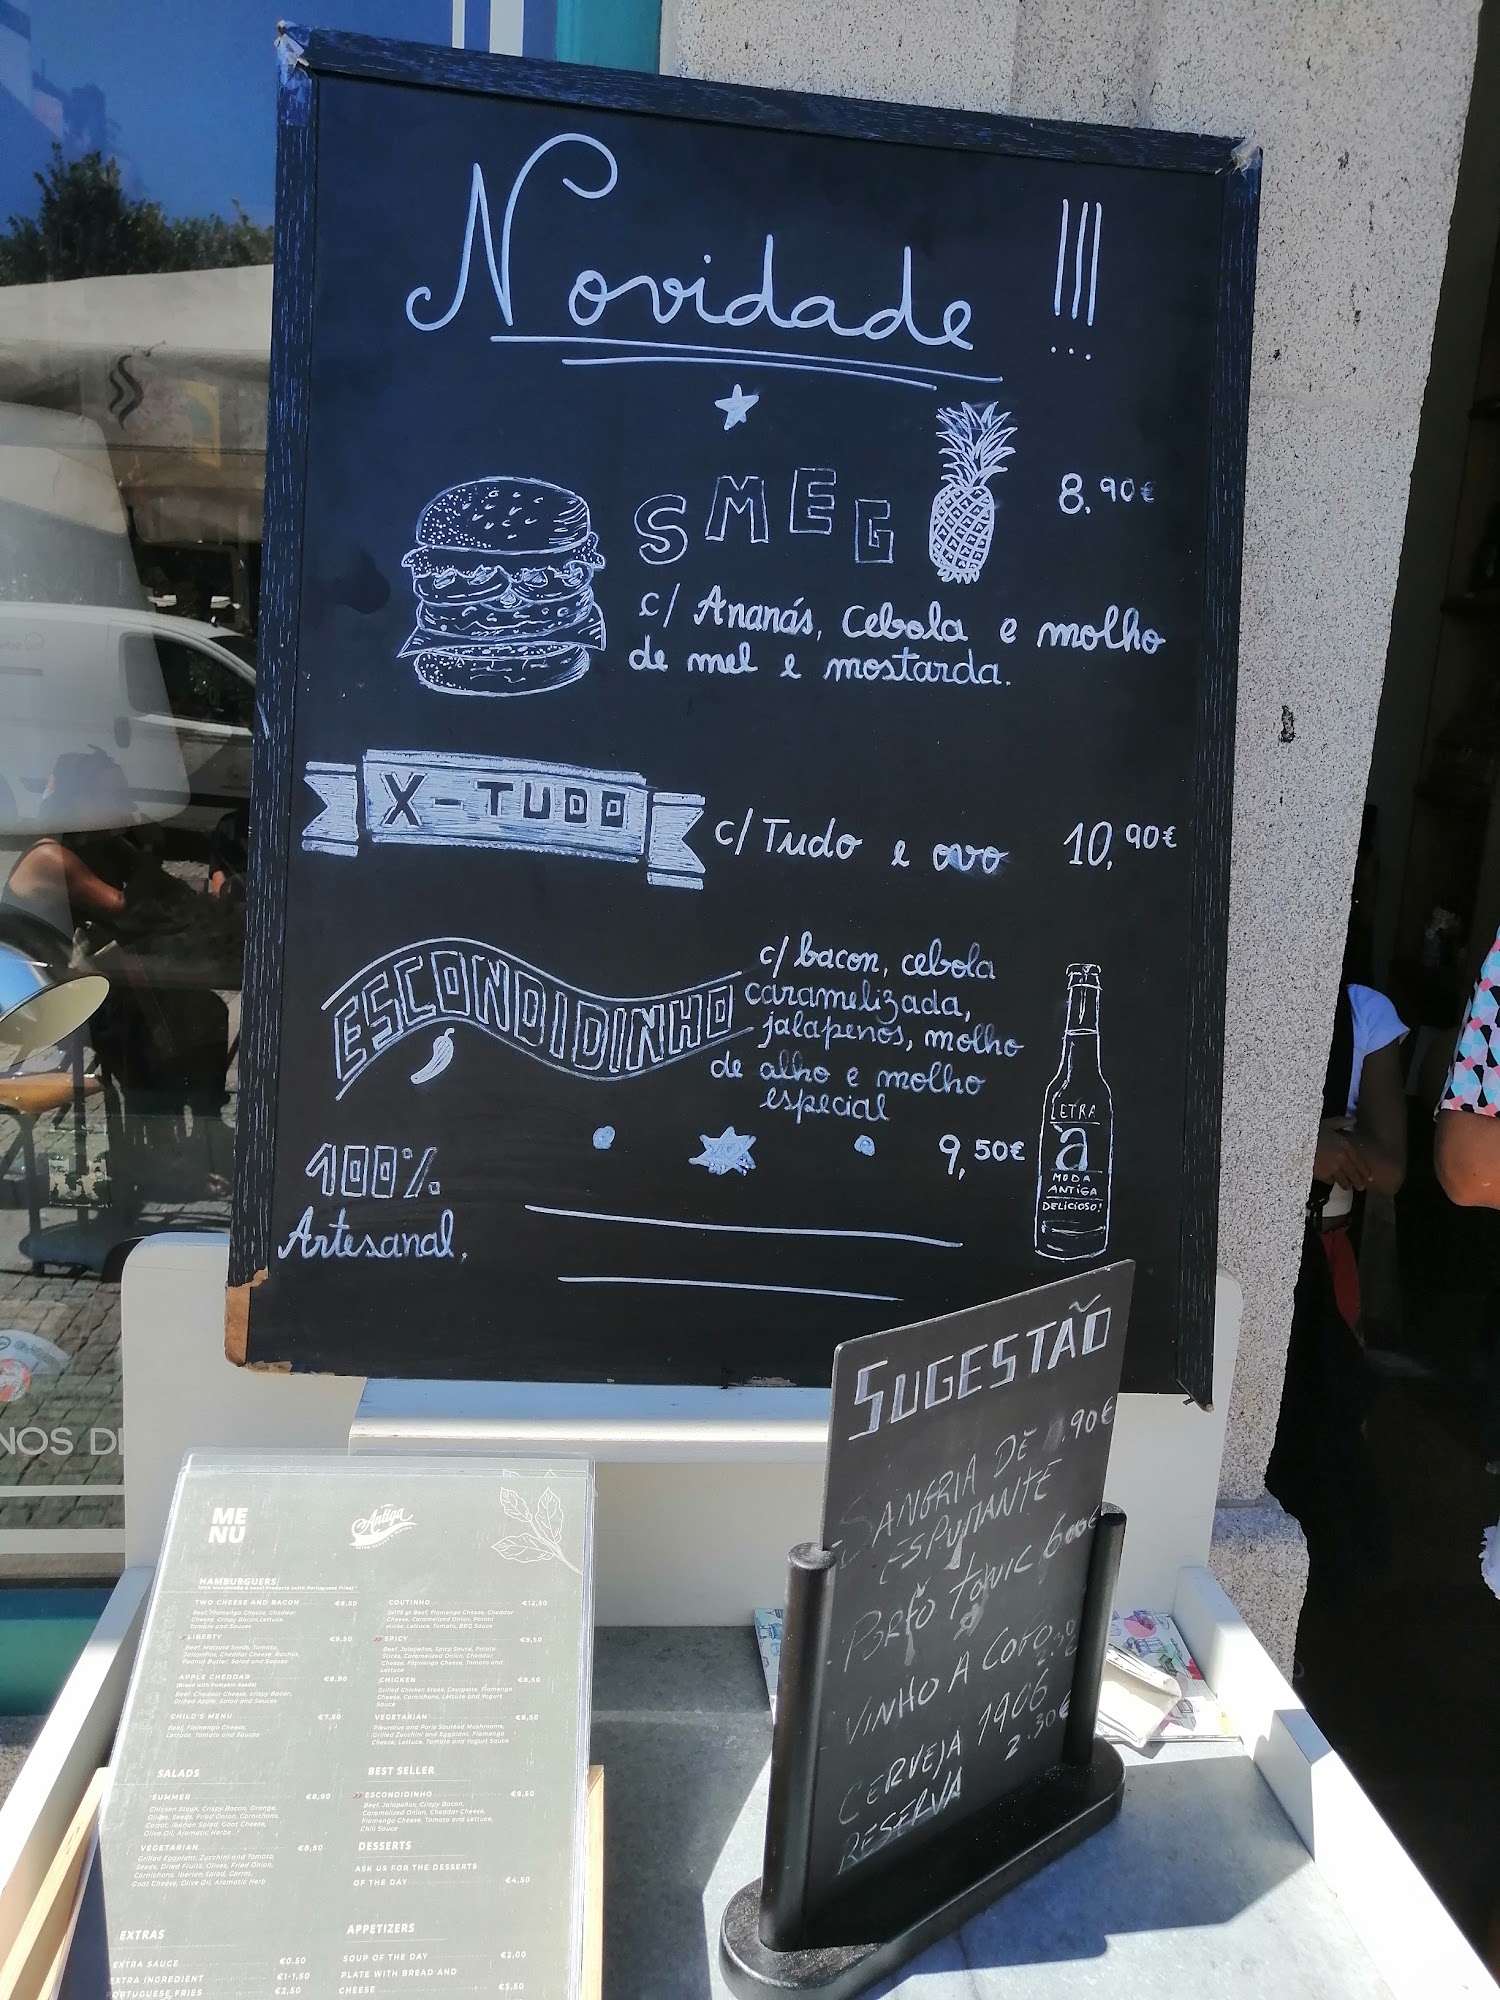 Novidade !!!
SMEG 8,90€
c/ Ananás, Cebola e molho
de mel e mostarda.
X-TUDO c/ Tudo e ovo 10,90€
ESCONDIDINHO
c/ bacon, cebola
caramelizada,
jalapenos, molho
de alho e molho
especial
9,50€
LETRA
à
MODA
ANTIGA
DELICIOSO!
100%
Artesanal.
SUGESTÃO
SANGRIA DE .90€
ESPUMANTE
PORTO TONIC 6.00€
VINHO A COPO
CERVEJA 1906
2.30€
RESERVA
NOS DI
MENU
Antiga
HAMBURGUERS
100% Handmade & Local Products (with Portuguese Fries)
TWO CHEESE AND BACON €8,50
Beef, Flamengo Cheese, Cheddar
Cheese, Crispy Bacon, Lettuce,
Tomato and Sauces
LIBERTY €9,50
Beef, Mustard Seeds, Tomato,
Jalapeños, Cheddar Cheese, Nachos,
Peanut Butter, Salad and Sauces
APPLE CHEDDAR €8,90
(Bread with Pumpkin Seeds)
Beef, Cheddar Cheese, Crispy Bacon,
Grilled Apple, Salad and Sauces
CHILD'S MENU €7,50
Beef, Flamengo Cheese,
Lettuce, Tomato and Sauces
COUTINHO €12,50
2x170 gr Beef, Flamengo Cheese, Cheddar
Cheese, Caramelized Onion, Potato
sticks, Lettuce, Tomato, BBQ Sauce
SPICY €9,50
Beef, Jalapeños, Spicy Sauce, Potato
Sticks, Caramelized Onion, Cheddar
Cheese, Flamengo Cheese, Tomato and
Lettuce
CHICKEN €8,50
Grilled Chicken Steak, Courgette, Flamengo
Cheese, Cornichons, Lettuce and Yogurt
Sauce
VEGETARIAN €8,50
Pleurotus and Paris Sautéed Mushrooms,
Grilled Zucchini and Eggplant, Flamengo
Cheese, Lettuce, Tomato and Yogurt Sauce
SALADS
SUMMER €8,90
Chicken Steak, Crispy Bacon, Orange,
Olives, Seeds, Fried Onion, Cornichons,
Carrot, Iberian Salad, Goat Cheese,
Olive Oil, Aromatic Herbs
VEGETARIAN €8,50
Grilled Eggplant, Zucchini and Tomato,
Seeds, Dried Fruits, Olives, Fried Onion,
Cornichons, Iberian Salad, Carrot,
Goat Cheese, Olive Oil, Aromatic Herb
BEST SELLER
ESCONDIDINHO €9,50
Beef, Jalapeños, Crispy Bacon,
Caramelized Onion, Cheddar Cheese,
Flamengo Cheese, Tomato and Lettuce,
Chili Sauce
DESSERTS
ASK US FOR THE DESSERTS
OF THE DAY €4,50
EXTRAS
EXTRA SAUCE €0,50
EXTRA INGREDIENT €1-1,50
PORTUGUESE FRIES €2,50
APPETIZERS
SOUP OF THE DAY €2,00
PLATE WITH BREAD AND
CHEESE €3,50